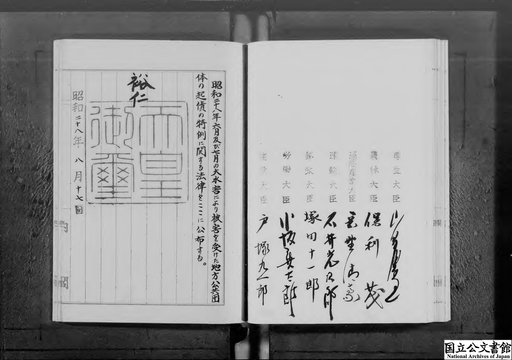 厚生大臣
農林大臣 保利茂
通商産業大臣
運輸大臣 石井光次郎
郵政大臣 塚田十一郎
労働大臣 小坂善太郎
建設大臣 戸塚九一郎
昭和二十八年六月及び七月の大水害により被害を受けた地方公共団
体の起債の特例に関する法律をここに公布する。
裕仁
天皇
御璽
昭和二十八年八月十七日
国立公文書館
National Archives of Japan